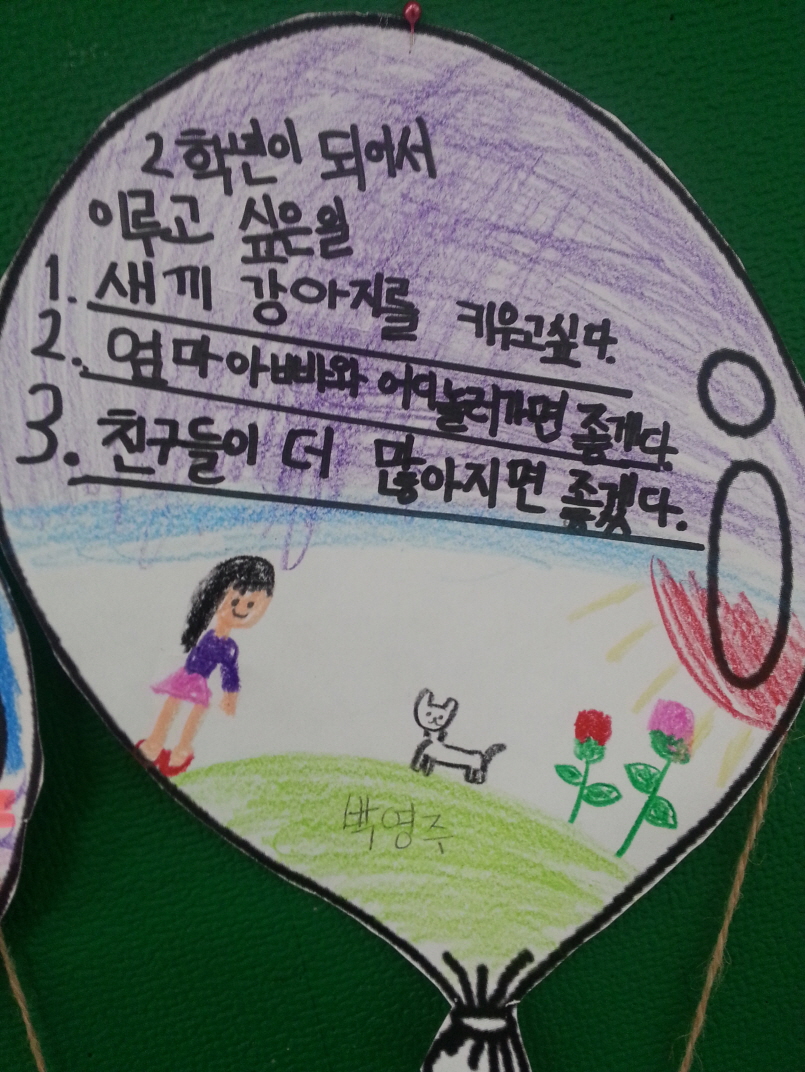 2학년이 되어서
이루고 싶은일
1. 새끼 강아지를 키우고싶다.
2. 엄마아빠와 어디놀러가면 좋겠다.
3. 친구들이 더 많아지면 좋겠다.
박영주